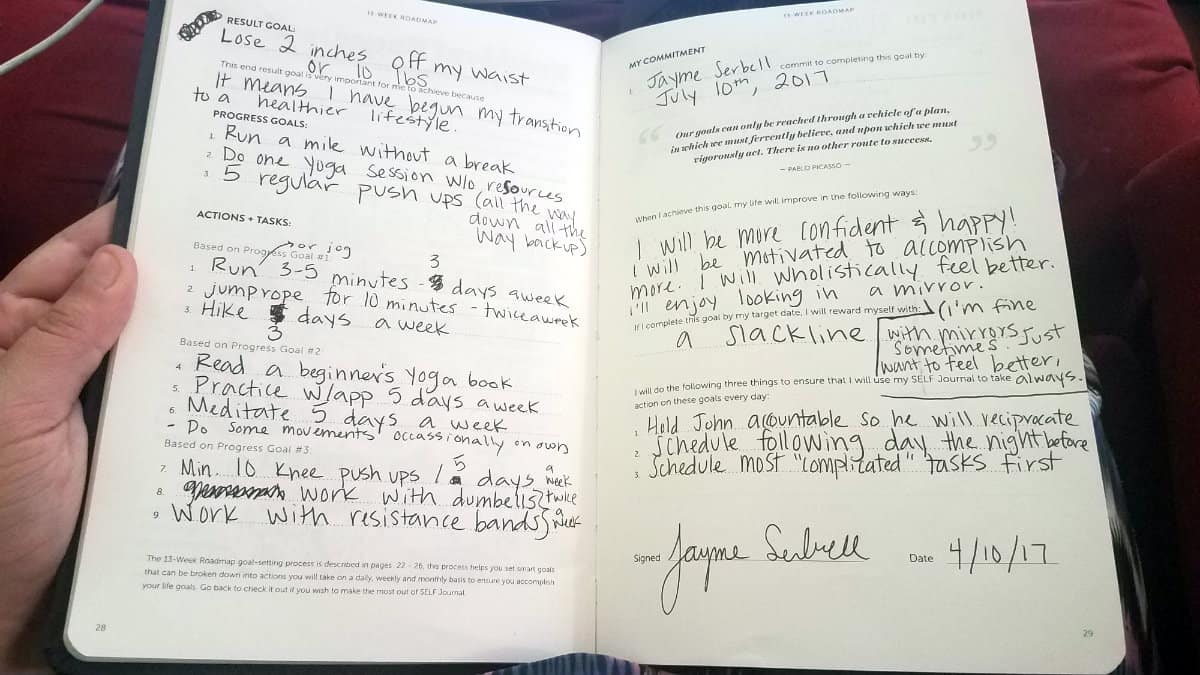 13-WEEK ROADMAP
RESULT GOAL:
Lose 2 inches off my waist
or 10 lbs
This end result goal is very important for me to achieve because
It means I have begun my transition
to a healthier lifestyle.
PROGRESS GOALS:
1. Run a mile without a break
2. Do one yoga session w/o resources
3. 5 regular push ups (all the way
down all the
way back up)
ACTIONS + TASKS:
Based on Progress Goal #1:
or jog
1. Run 3-5 minutes - 3 days a week
2. jumprope for 10 minutes - twice a week
3. Hike 3 days a week
Based on Progress Goal #2
4. Read a beginner's yoga book
5. Practice w/app 5 days a week
6. Meditate 5 days a week
- Do some movements occassionally on own
Based on Progress Goal #3
7. Min. 10 knee push ups / 5 days a week
8. work with dumbells } twice
9. Work with resistance bands } a week
The 13-Week Roadmap goal-setting process is described in pages 22 - 26, this process helps you set smart goals
that can be broken down into actions you will take on a daily, weekly and monthly basis to ensure you accomplish
your life goals. Go back to check it out if you wish to make the most out of SELF Journal.
28
13-WEEK ROADMAP
MY COMMITMENT
I, Jayme Serbell commit to completing this goal by:
July 10th, 2017
“Our goals can only be reached through a vehicle of a plan,
in which we must fervently believe, and upon which we must
vigorously act. There is no other route to success.”
— PABLO PICASSO —
When I achieve this goal, my life will improve in the following ways:
I will be more confident & happy!
I will be motivated to accomplish
more. I will wholistically feel better.
I'll enjoy looking in a mirror.
If I complete this goal by my target date, I will reward myself with:
a slackline
(i'm fine
with mirrors, just
sometimes I
want to feel better,
always.
I will do the following three things to ensure that I will use my SELF Journal to take
action on these goals every day:
1. Hold John accountable so he will reciprocate
2. Schedule following day the night before
3. Schedule most "complicated" tasks first
Signed Jayme Serbell Date 4/10/17
29